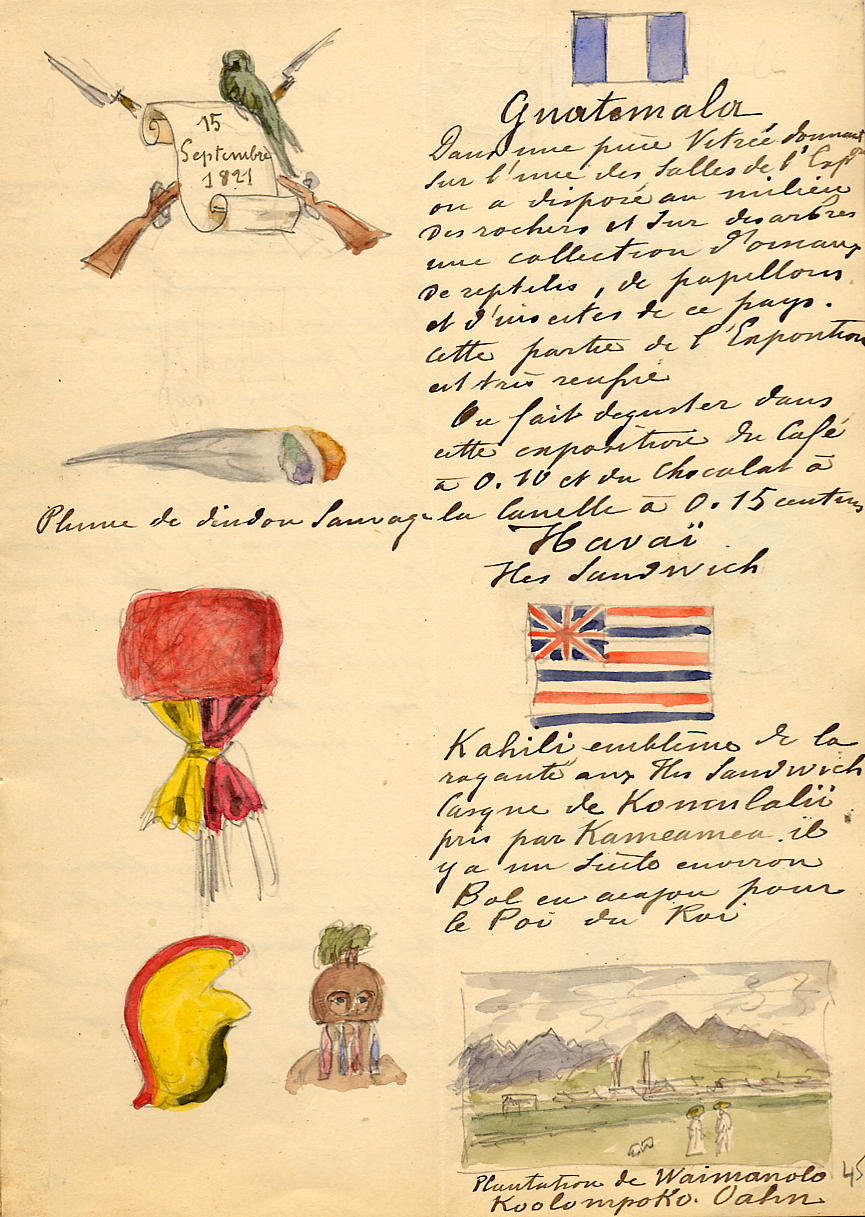 15
Septembre
1821
Guatemala
Dans une pièce Vitrée donnant
sur l'une des salles de l'Expon
on a disposé au milieu
des rochers et sur des arbres
une collection d'oiseaux
de reptiles, de papillons
et d'insectes de ce pays.
cette partie de l'Exposition
est très
On fait deguster dans
cette exposition du Café
à 0.10 et du Chocolat à
la Canelle à 0.15 centimes
Plume de dindon Sauvage
Havaï
Iles Sandwich
Kahili emblème de la
royauté aux Iles Sandwich
Casque de
pris par Kameamea il
y a un siècle environ
Bol en acajou pour
le Poi du Roi
Plantation de Waimanolo
Koolompoko. Oahu
45